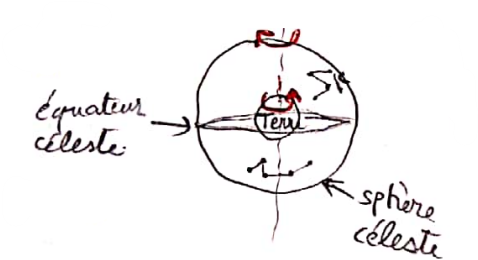 équateur
céleste.
Terre
sphère
céleste